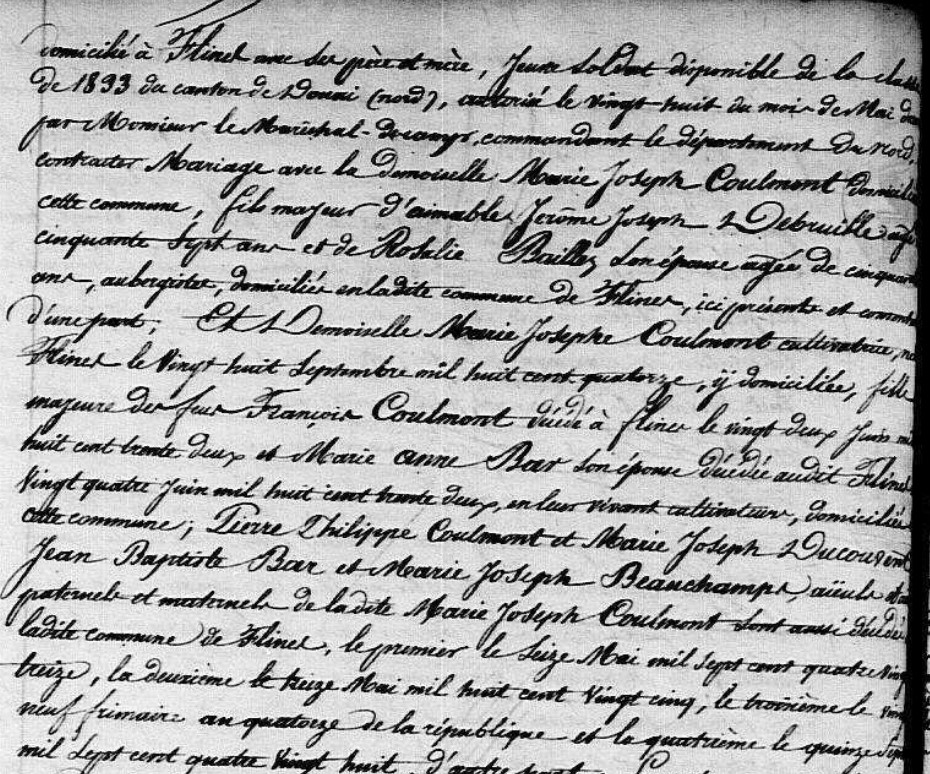 domicilié à Flines avec ses père et mère, Jeune Soldat disponible de la classe
de 1833 du canton de Douai (nord), autorisé le vingt huit du mois de Mai
par Monsieur le Maréchal-de camp, commandant le département du nord,
contracter Mariage avec la demoiselle Marie Joseph Coulmont domiciliée
cette commune, fils majeur d'aimable Jérôme Joseph Debruille agé
cinquante Sept ans et de Rosalie Baillez son épouse agée de cinquante
ans, aubergistes, domiciliés en ladite commune de Flines, ici présents et consent
d'une part; Et Demoiselle Marie Josephe Coulmont cultivatrice, née
Flines le Vingt huit Septembre mil huit cent quatorze, y domiciliée, fille
majeure des feus François Coulmont décédé à flines le vingt deux Juin mil
huit cent trente deux et Marie anne Bar son épouse décédée audit Flines
Vingt quatre Juin mil huit cent trente deux, en leur vivant cultivateurs, domiciliés
cette commune; Pierre Philippe Coulmont et Marie Joseph Ducouvent
Jean Baptiste Bar et Marie Joseph Beauchamps, aïeuls
paternels et maternels de ladite Marie Joseph Coulmont sont aussi décédés
ladite commune de Flines, le premier le Seize Mai mil Sept cent quatre vingt
treize, la deuxième le treize Mai mil huit cent Vingt cinq, le troisième le vingt
neuf frimaire an quatorze de la république et la quatrième le quinze Sept
mil Sept cent quatre Vingt huit, d'autre part